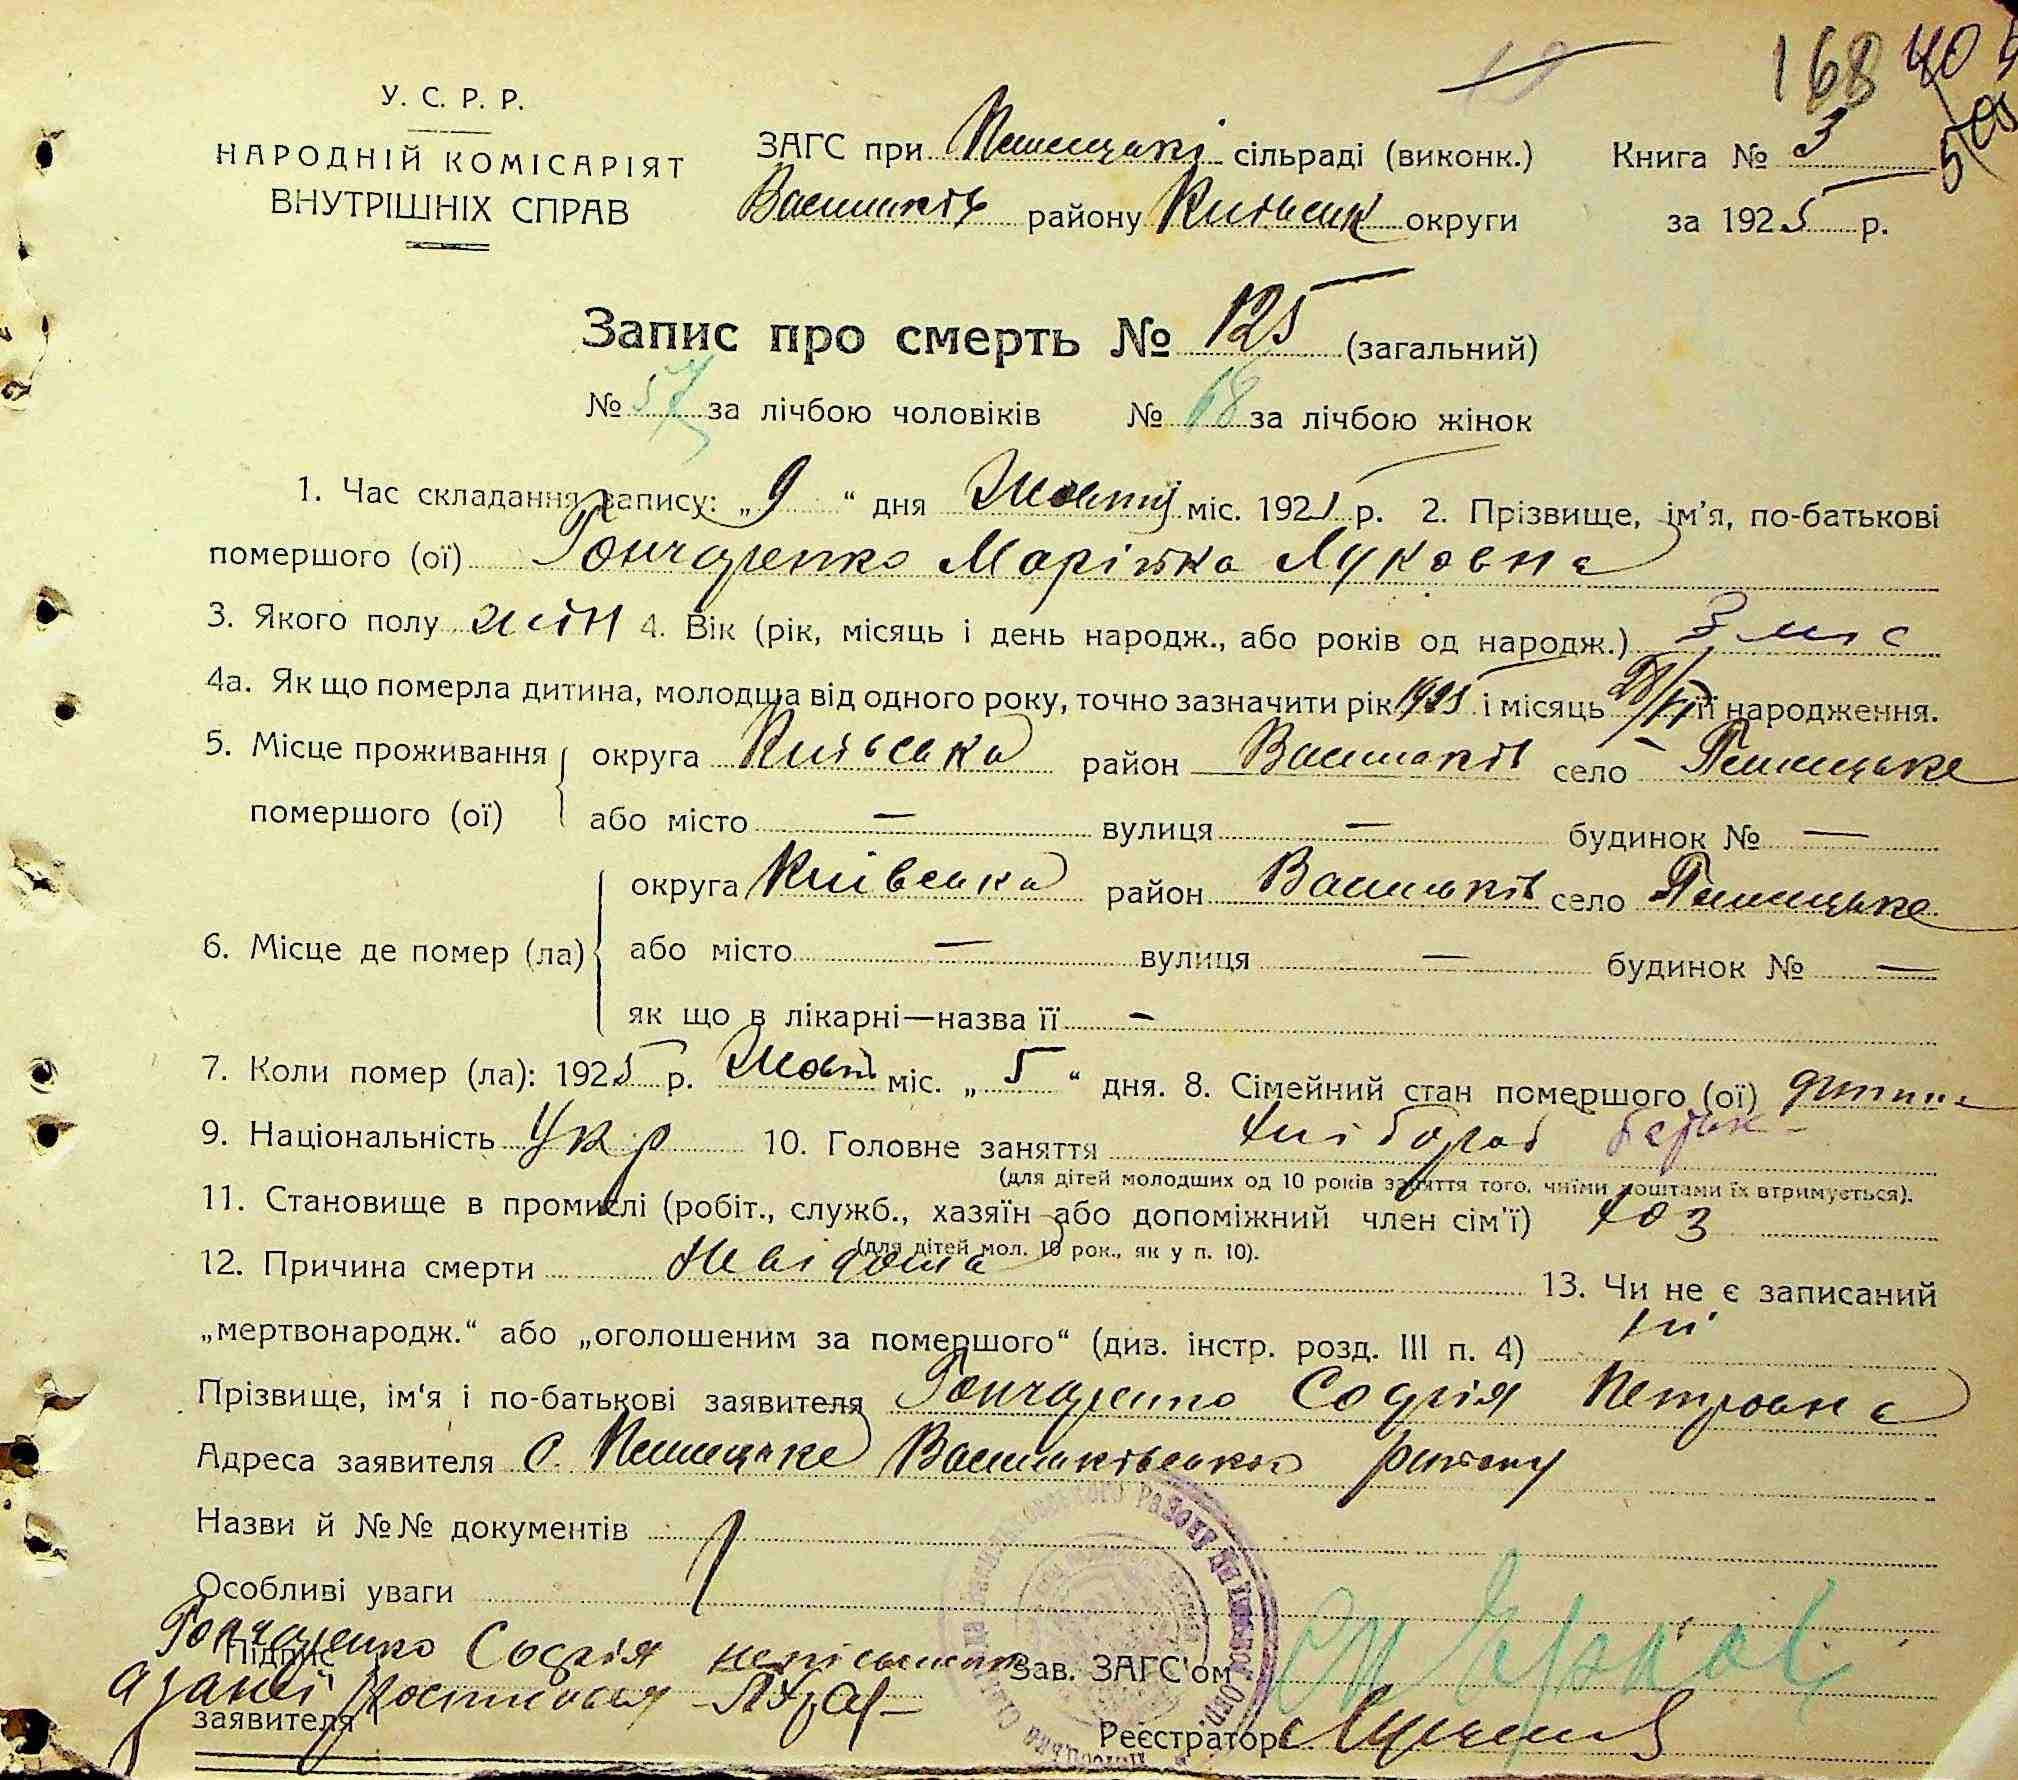 168
У. С. Р. Р.
НАРОДНІЙ КОМІСАРІЯТ
ВНУТРІШНІХ СПРАВ
ЗАГС при сільраді (виконк.) Книга № 3
Васильків району Київськ округи за 1925 р.
Запис про смерть № 125 (загальний)
№ 57 за лічбою чоловіків № 68 за лічбою жінок
1. Час складання запису: „9“ дня Жовтня міс. 1925 р. 2. Прізвище, ім'я, по-батькові
помершого (ої) Гончаренко Марійка Луковна
3. Якого полу жін 4. Вік (рік, місяць і день народж., або років од народж.) 3 міс
4а. Як що померла дитина, молодша від одного року, точно зазначити рік 1925 і місяць 28/VI її народження.
5. Місце проживання округа Київська район Васильків село
помершого (ої) або місто — вулиця — будинок № —
округа Київська район Васильків село
6. Місце де помер (ла) або місто — вулиця — будинок № —
як що в лікарні—назва її —
7. Коли помер (ла): 1925 р. Жовт міс. „5“ дня. 8. Сімейний стан помершого (ої) дитина
9. Національність Укр 10. Головне заняття хлібороб батьк
(для дітей молодших од 10 років заняття того, чиїми коштами їх втримується).
11. Становище в промислі (робіт., служб., хазяїн або допоміжний член сім'ї) хоз
(для дітей мол. 10 рок., як у п. 10).
12. Причина смерти Невідома 13. Чи не є записаний
„мертвонародж.“ або „оголошеним за помершого“ (див. інстр. розд. III п. 4) ні
Прізвище, ім'я і по-батькові заявителя Гончаренко Софія Петровна
Адреса заявителя с. Васильківського району
Назви й №№ документів
Особливі уваги
Гончаренко Софія неписьмен
Підпис Зав. ЗАГС'ом
а за неї
заявителя
Реєстратор